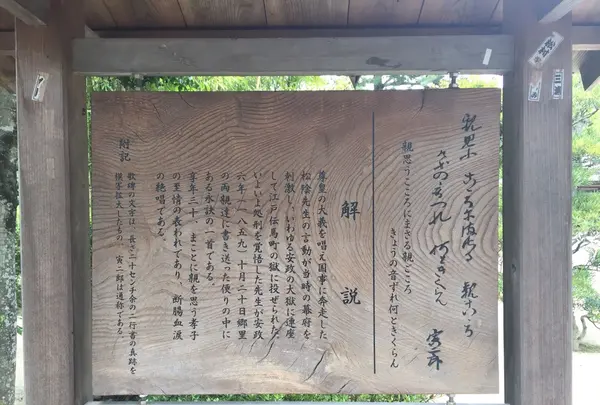 親思ふ こころにまさる 親こゝろ
けふのおとつれ 何ときくらん 寅二郎
親思うこころにまさる親ごころ
きょうの音ずれ何ときくらん
解説
尊皇の大義を唱え国事に奔走した
松陰先生の言動が当時の幕府を
刺激し、いわゆる安政の大獄に連座
して江戸伝馬町の獄に投ぜられた。
いよいよ処刑を覚悟した先生が安政
六年(一八五九)十月二十日郷里
の両親達に書き送った便りの中に
ある永訣の一首である。
享年三十、まことに親を思う孝子
の至情の表われであり、断腸血涙
の絶唱である。
附記
歌碑の文字は、長さ二十センチ余の一行書の真跡を
模写拡大したもの、寅二郎は通称である。